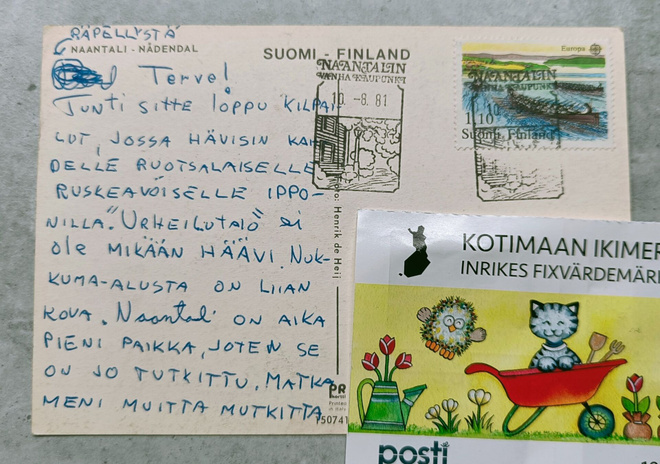 RÄPELLYSTÄ
NAANTALI - NÅDENDAL
SUOMI - FINLAND
Europa
NAANTALIN
VANHA KAUPUNKI
10.-8.81
NAANTALIN
VANHA KAUPUNKI
10
1,10
Suomi Finland
Terve!
TUNTI SITTE LOPPU KILPAI
LUT, JOSSA HÄVISIN KAH
DELLE RUOTSALAISELLE
RUSKEAVÖISELLE IPPO-
NILLA. "URHEILUTALO" ei
ole MIKÄÄN HÄÄVI. NUK-
KUMA-ALUSTA ON LIIAN
KOVA. Naantali ON AIKA
PIENI PAIKKA, JOTEN SE
ON JO TUTKITTU. MATKA
MENI MUITTA MUTKITTA.
Foto. Henrik de Heij
PR
150741
KOTIMAAN IKIMER
INRIKES FIXVÄRDEMÄR
posti